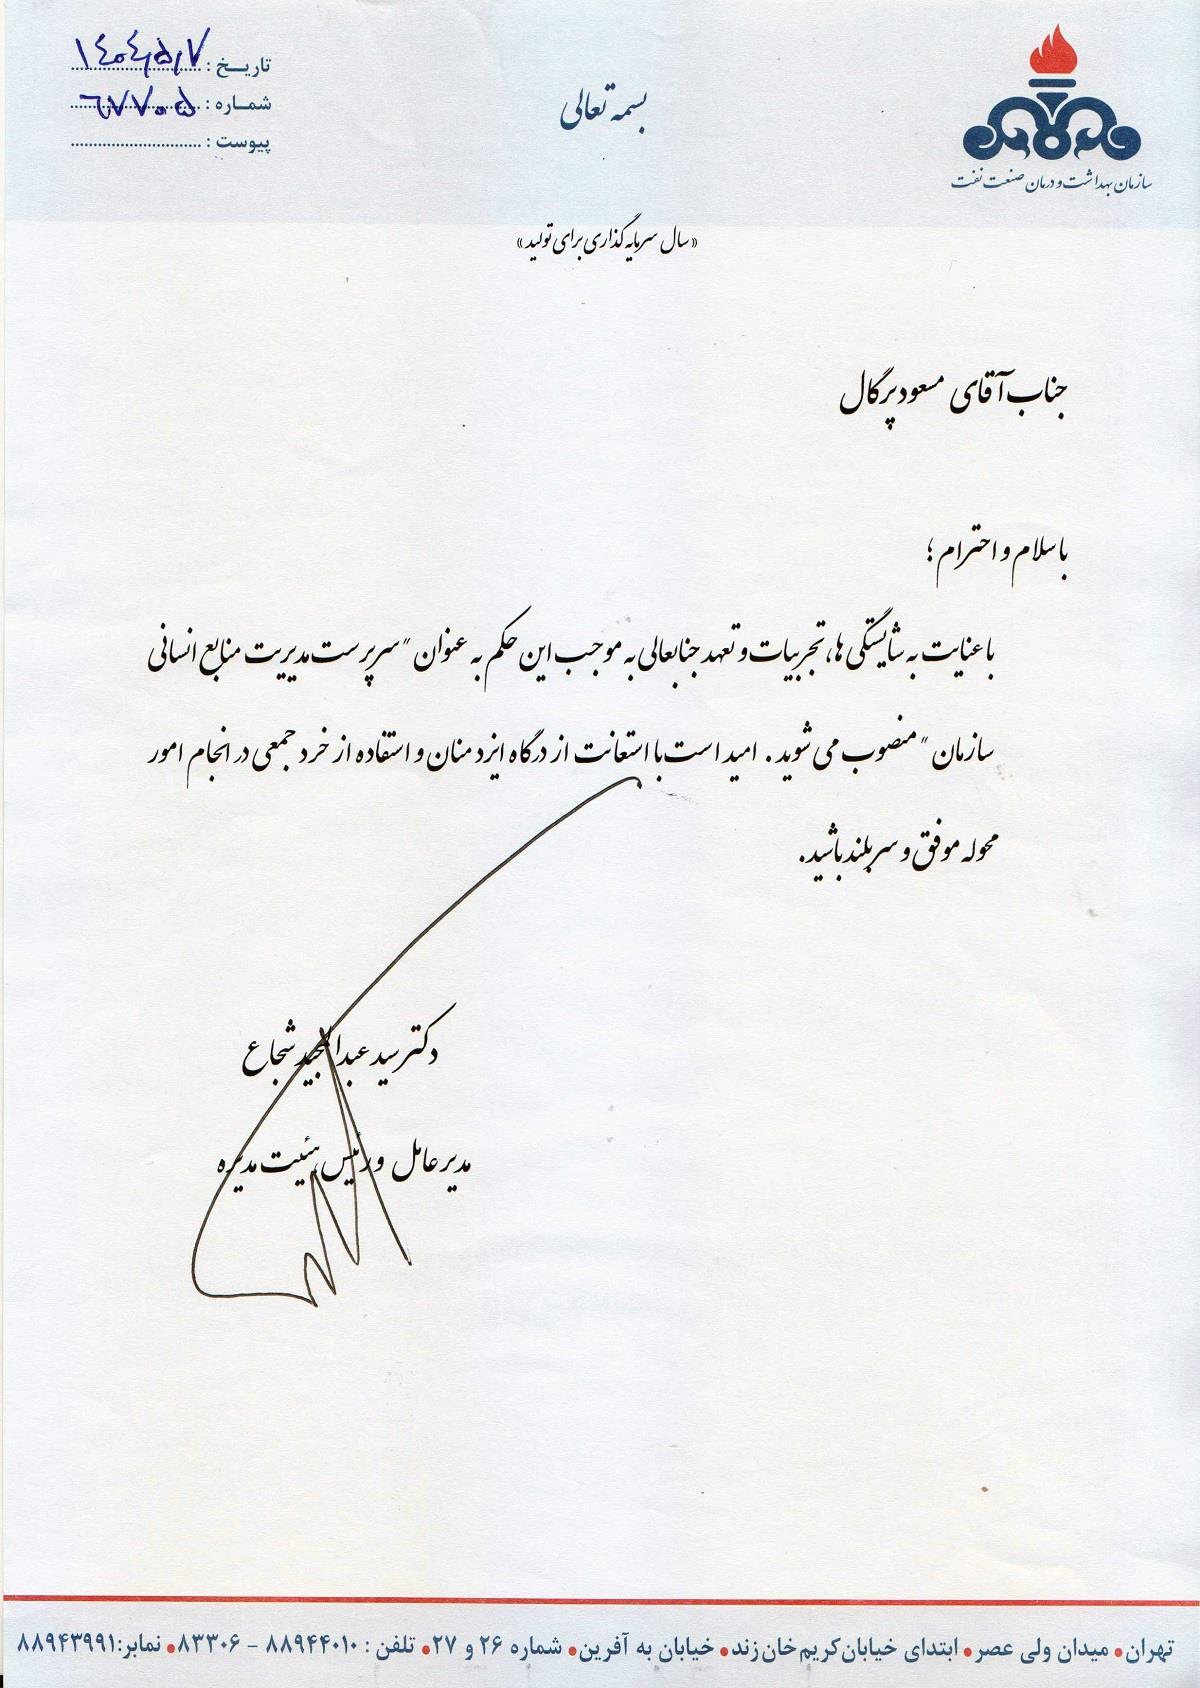 تاریخ : ۱۴۰۴/۵/۷
شماره : ۶۷۷۰۵
پیوست :
بسمه تعالی
سازمان بهداشت و درمان صنعت نفت
«سال سرمایه گذاری برای تولید»
جناب آقای مسعود پرگال
با سلام و احترام ؛
با عنایت به شایستگی ها، تجربیات و تعهد جنابعالی به موجب این حکم به عنوان "سرپرست مدیریت منابع انسانی
سازمان" منصوب می شوید . امید است با استعانت از درگاه ایزد منان و استفاده از خرد جمعی در انجام امور
محوله موفق و سربلند باشید.
دکتر سید عبدالمجید شجاع
مدیرعامل و رئیس هیئت مدیره
تهران • میدان ولی عصر • ابتدای خیابان کریم خان زند • خیابان به آفرین • شماره ۲۶ و ۲۷ • تلفن : ۸۸۹۴۴۰۱۰ - ۸۳۳۰۶ • نمابر:۸۸۹۴۳۹۹۱